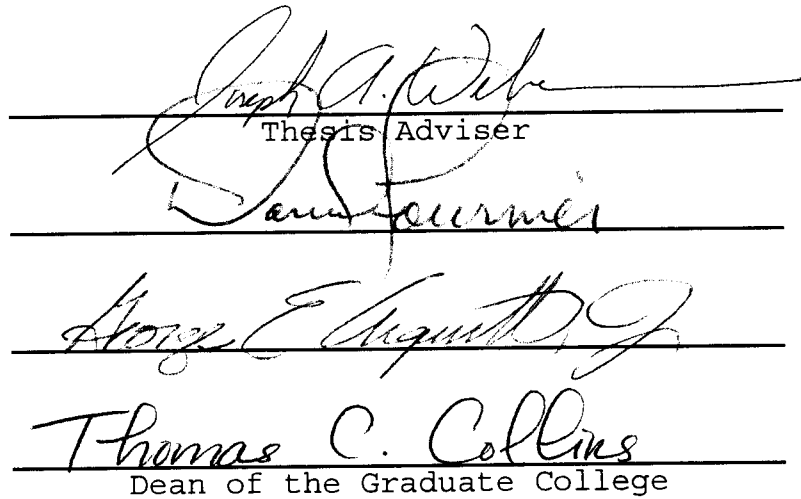 Joseph A. Weber
Thesis Adviser
Fournier
George E Arquitt, Jr
Thomas C. Collins
Dean of the Graduate College